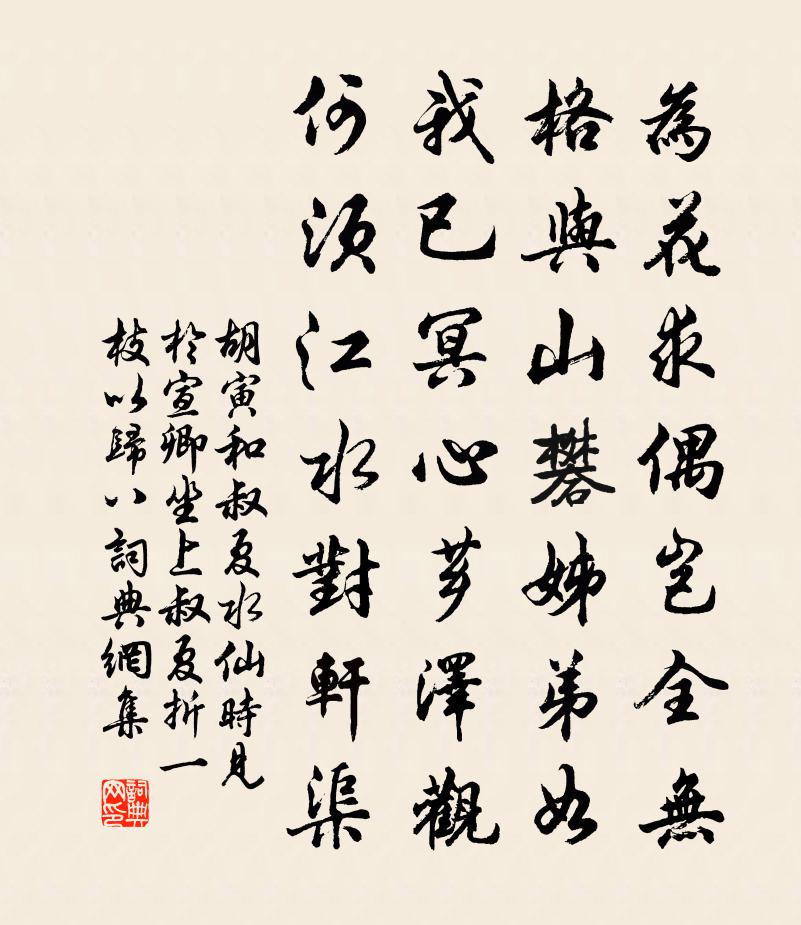 為花求偶豈全無
格與山礬姊弟如
我已冥心芗澤觀
何須江水對軒渠
胡寅和叔夏水仙時見
於宣卿坐上叔夏折一
枝以歸八詞典網集
詞典
网印